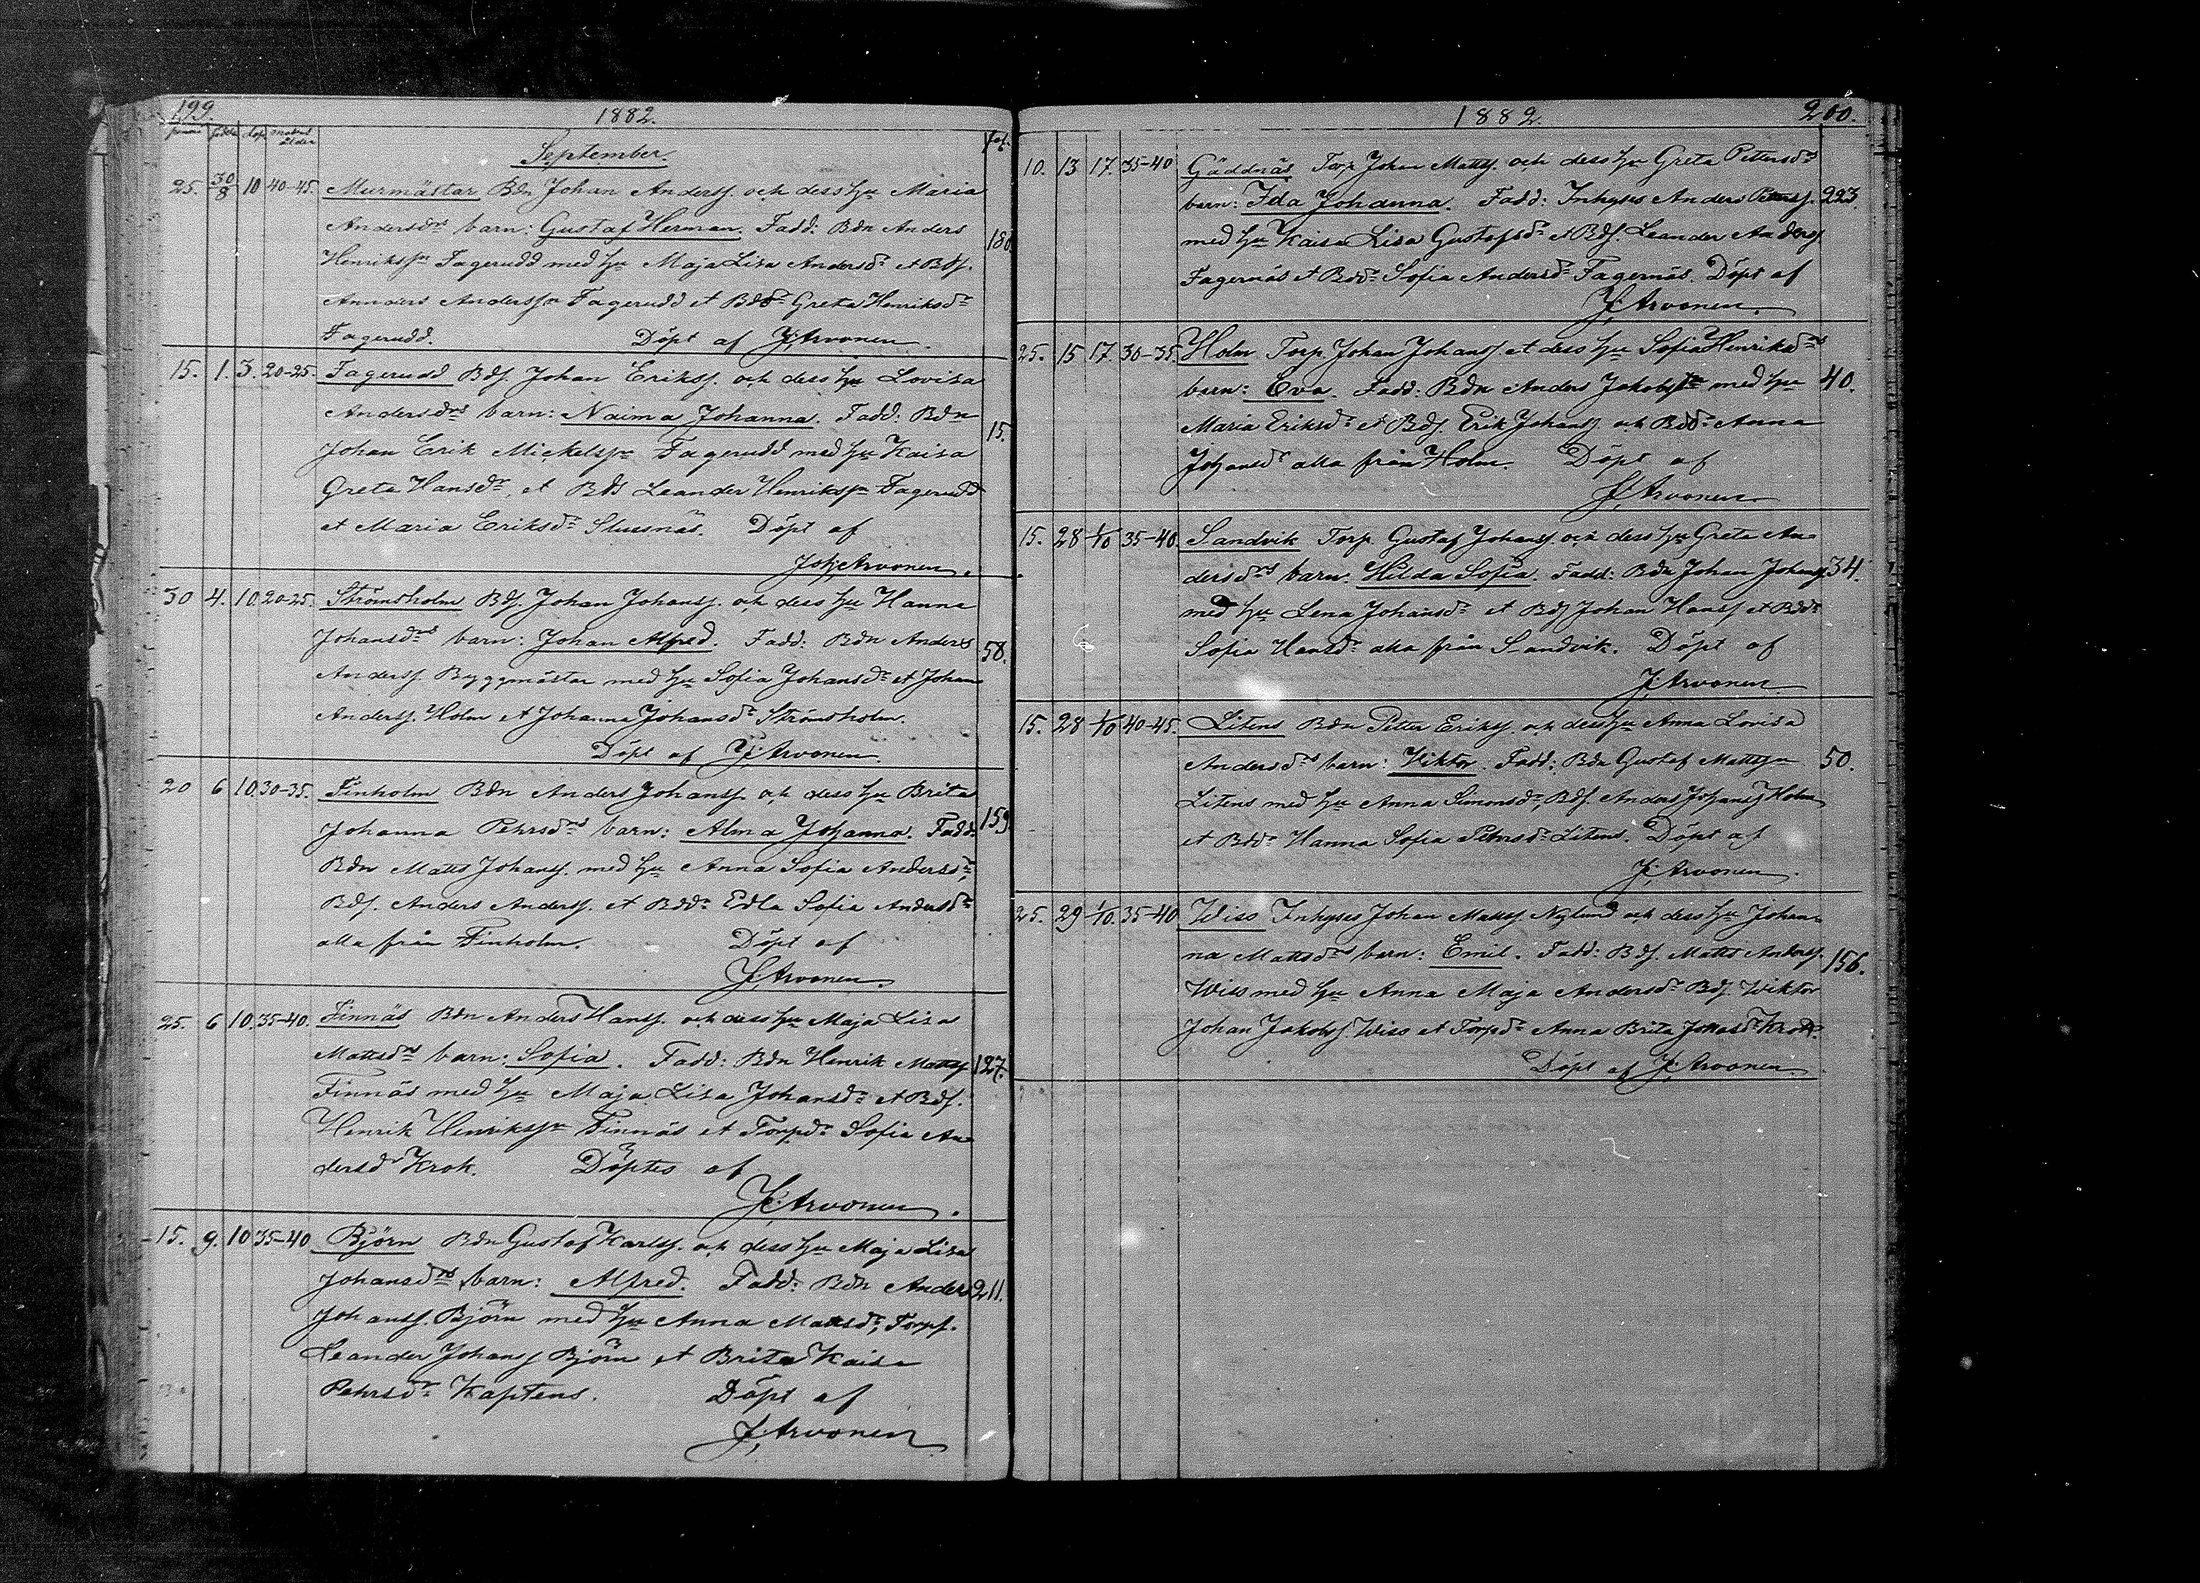 199.
1882.
födde döp. modrens ålder
fol.
September.
25. 30/8 10 40-45. Murmästar Bdn Johan Anderss. och dess hu Maria
Andersdrs barn: Gustaf Herman. Fadd: Bdn Anders
Henrikssn Fagerudd med hu Maja Lisa Andersdr et Bds.
Annders Anderssn Fagerudd et Bddr Greta Henriksdr
Fagerudd. Döpt af J. Arvonen.
15. 1. 3. 20-25. Fagerudd Bds. Johan Erikss. och dess hu Lovisa
Andersdrs barn: Naima Johanna. Fadd: Bdn
15.
Johan Erik Mickelssn Fagerudd med hu Kaisa
Greta Hansdr, et Bds Leander Henrikssn Fagerudd
et Maria Eriksdr Slussnäs. Döpt af
Joh. Arvonen.
30 4. 10. 20-25. Strömsholm Bds. Johan Johanss. och dess hu Hanna
Johansdrs barn: Johan Alfred. Fadd: Bdn Anders
58.
Anderss. Byggmästar med hu Sofia Johansdr et Johan
Anderss. Holm et Johanna Johansdr Strömsholm.
Döpt af J. Arvonen.
20 6 10. 30-35. Finholm Bdn Anders Johanss. och dess hu Brita
Johanna Pehrsdrs barn: Alma Johanna. Fadd: 159.
Bdn Matts Johanss. med hu Anna Sofia Andersdr,
Bds. Anders Anderss. et Bddr Edla Sofia Andersdr
alla från Finholm. Döpt af
J. Arvonen.
25. 6 10. 35-40. Finnäs Bdn Anders Hanss. och dess hu Maja Lisa
Mattsdrs barn: Sofia. Fadd: Bdn Henrik Mattss 127.
Finnäs med hu Maja Lisa Johansdr et Bds.
Henrik Henrikssn Finnäs et Torpdr Sofia An-
dersdr Krok. Döptes af
J. Arvonen.
15. 9. 10 35-40 Björn Bdn Gustaf Karlss. och dess hu Maja Lisa
Johansdrs barn: Alfred. Fadd: Bdn Anders 211.
Johanss. Björn med hu Anna Mattsdr, Torps.
Leander Johanss Björn et Brita Kaisa
Pehrsdr Kaptens. Döpt af
J. Arvonen
1882.
200.
10. 13 17. 35-40 Gäddnäs Torp. Johan Mattss. och dess hu Greta Pettersdrs
barn: Ida Johanna. Fadd: Inhyses Anders Petterss. 223.
med hu Kaisa Lisa Gustafsdr et Bds. Leander Anderss
Fagernäs et Bddr Sofia Andersdr Fagernäs. Döpt af
J. Arvonen.
25. 15 17. 30-35. Holm Torp. Johan Johanss. et dess hu Sofia Henriksdrs
barn: Eva. Fadd: Bdn Anders Jakobssn med hu 40.
Maria Eriksdr et Bds. Erik Johanss. och Bddr Anna
Johansdr alla från Holm. Döpt af
J. Arvonen.
15. 28 1/10 35-40. Sandvik Torp. Gustaf Johanss. och dess hu Greta An-
dersdrs barn. Hilda Sofia. Fadd: Bdn Johan Johanss 34.
med hu Lena Johansdr et Bds Johan Hanss et Bddr
Sofia Hansdr alla från Sandvik. Döpt af
J. Arvonen
15. 28 1/10 40-45. Litens Bdn Petter Erikss. och dess hu Anna Lovisa
Andersdrs barn: Viktor. Fadd: Bdn Gustaf Mattssn 50.
Litens med hu Anna Simonsdr Bds. Anders Johanss Holm
et Bddr Hanna Sofia Pehrsdr Litens. Döpt af
J. Arvonen.
25. 29 1/10. 35-40 Wiss Inhyses Johan Mattss. Nylund och dess hu Johan-
na Mattsdrs barn: Emil. Fadd: Bds. Matts Anderss. 156.
Wiss med hu Anna Maja Andersdr Bds. Wiktor
Johan Jakobss Wiss et Torpdr Anna Brita Jonasdr Krok.
Döpt af J. Arvonen